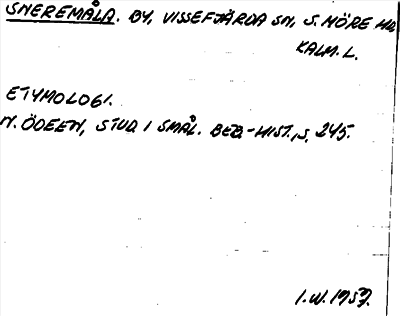 SNEREMÅLA. BY, VISSEFJÄRDA SN, S. MÖRE HD
KALM. L.
ETYMOLOGI.
N. ÖDEEN, STUD. I SMÅL. BEB.-HIST., S. 245.
I.W. 1959.